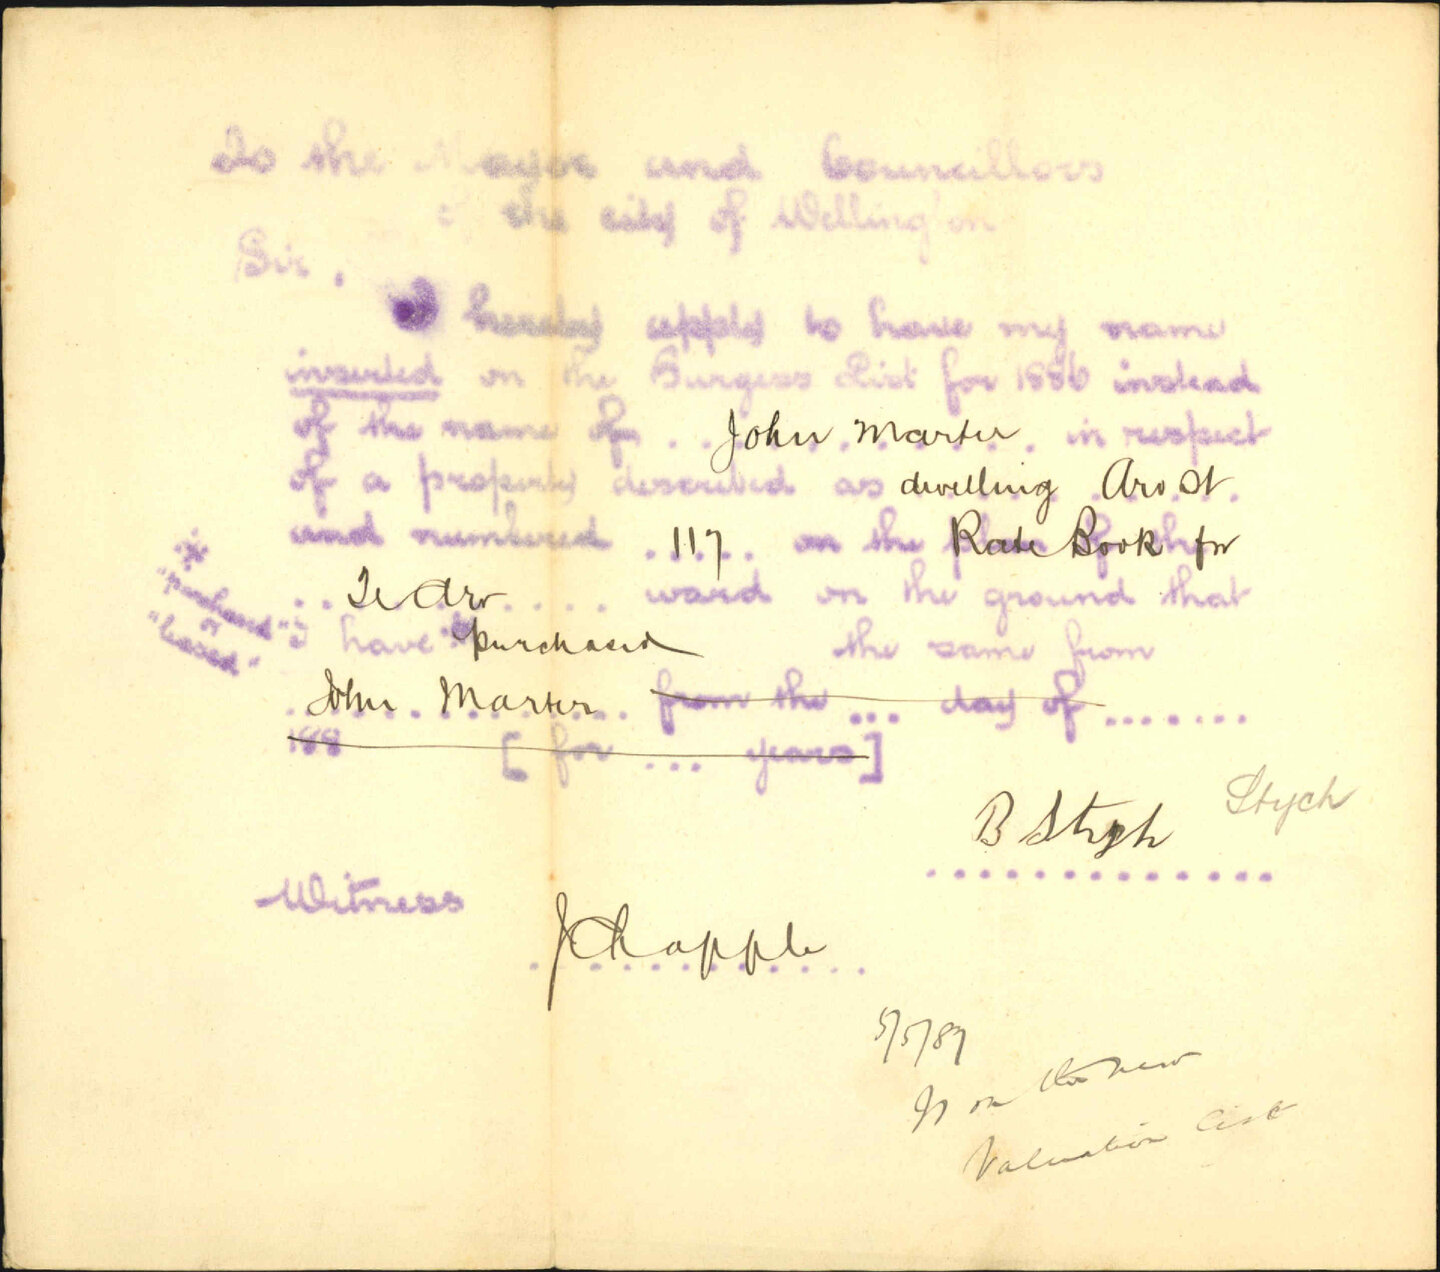 To the Mayor and Councillors
of the city of Wellington
Sir.
I hereby apply to have my name
inserted on the Burgess List for 1886 instead
of the name of John Marter in respect
of a property described as dwelling Aro St
and numbered 117 on the plan of the Rate Book for
Te Aro ward on the ground that
* "purchased" or "leased"
I have * purchased the same from
John Marter from the ... day of ........
188 [for ... years]
B Stych Stych
Witness
J Chapple
5/5/87
Is on the new
Valuation List